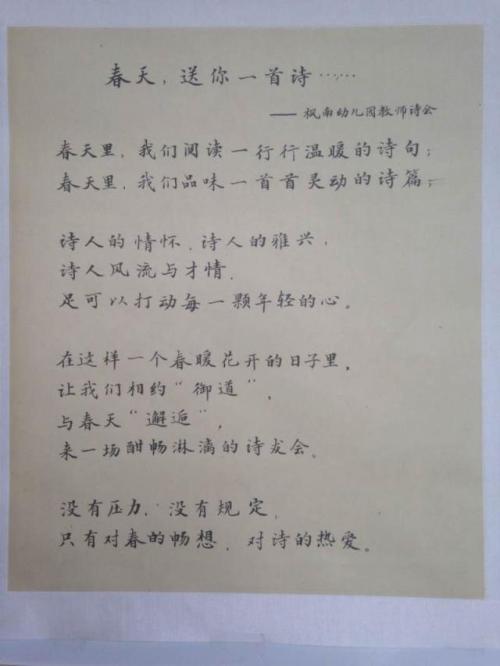 春天，送你一首诗……
—— 枫南幼儿园教师诗会
春天里，我们阅读一行行温暖的诗句；
春天里，我们品味一首首灵动的诗篇；
诗人的情怀，诗人的雅兴，
诗人风流与才情，
足可以打动每一颗年轻的心。
在这样一个春暖花开的日子里，
让我们相约“御道”，
与春天“邂逅”，
来一场酣畅淋漓的诗友会。
没有压力，没有规定，
只有对春的畅想，对诗的热爱。